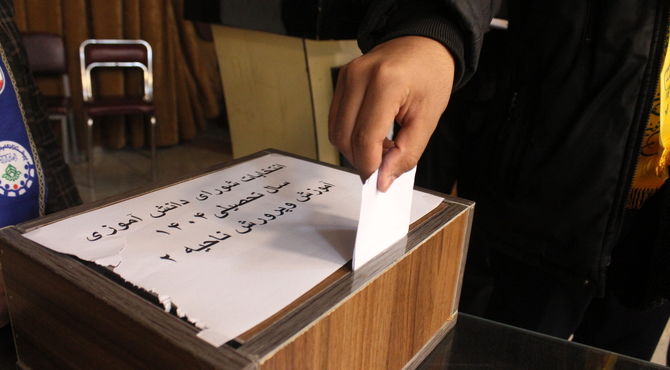 انتخابات شورای دانش آموزی
سال تحصیلی ۱۴۰۴
آموزش وپرورش ناحیه ۲